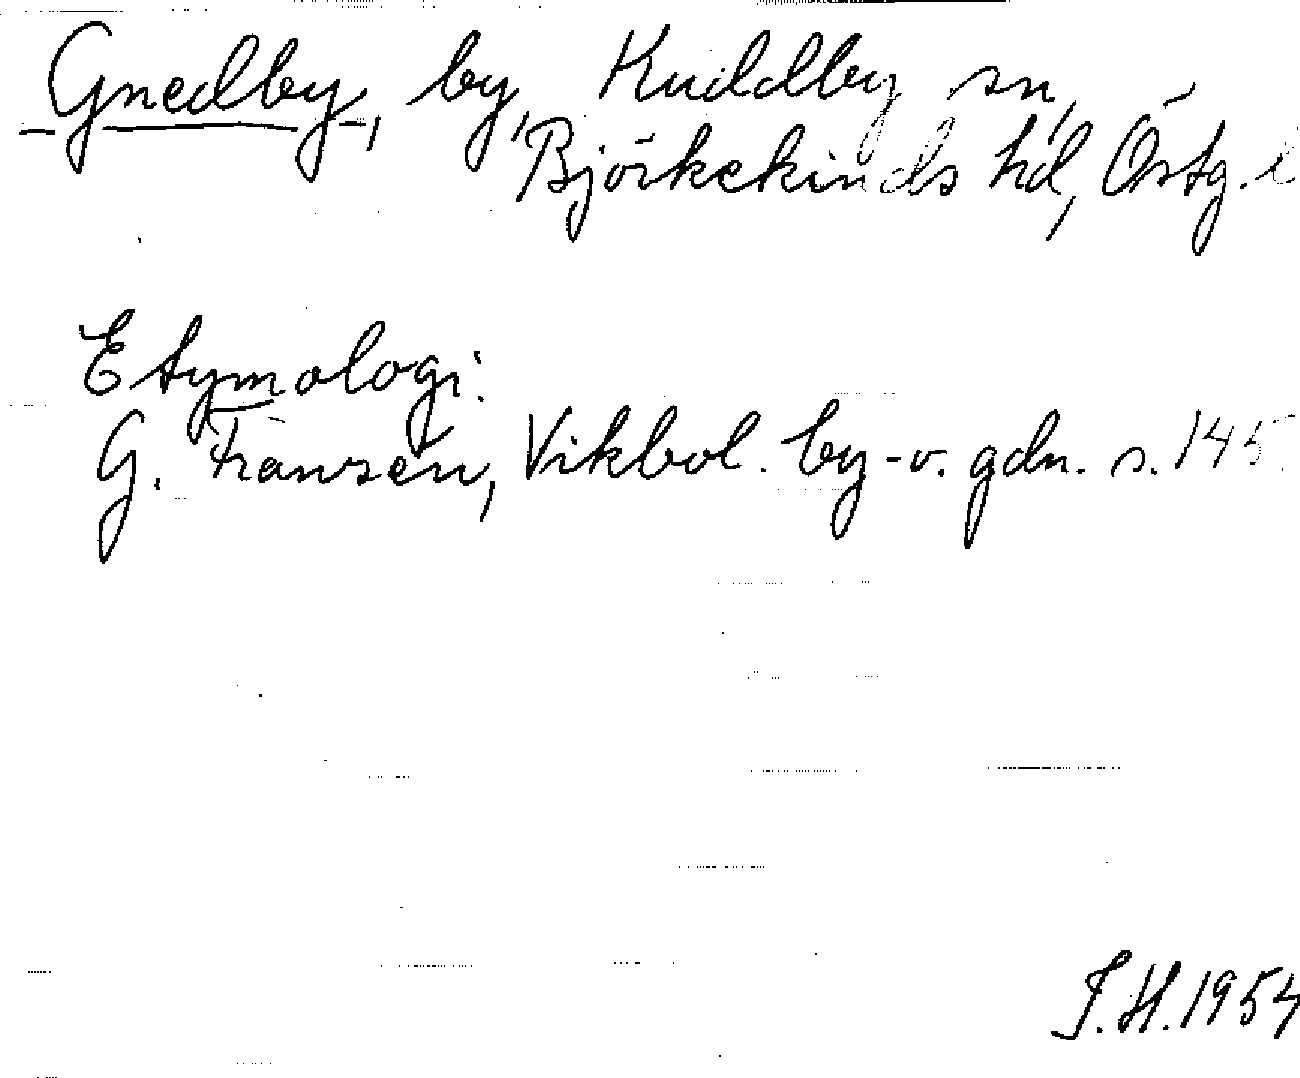 Gnedby, by, Kuddby sn,
Björkekinds hd, Östg. l
Etymologi.
G. Franzén, Vikbol. by- o. gdn. s. 145.
S.H. 1954